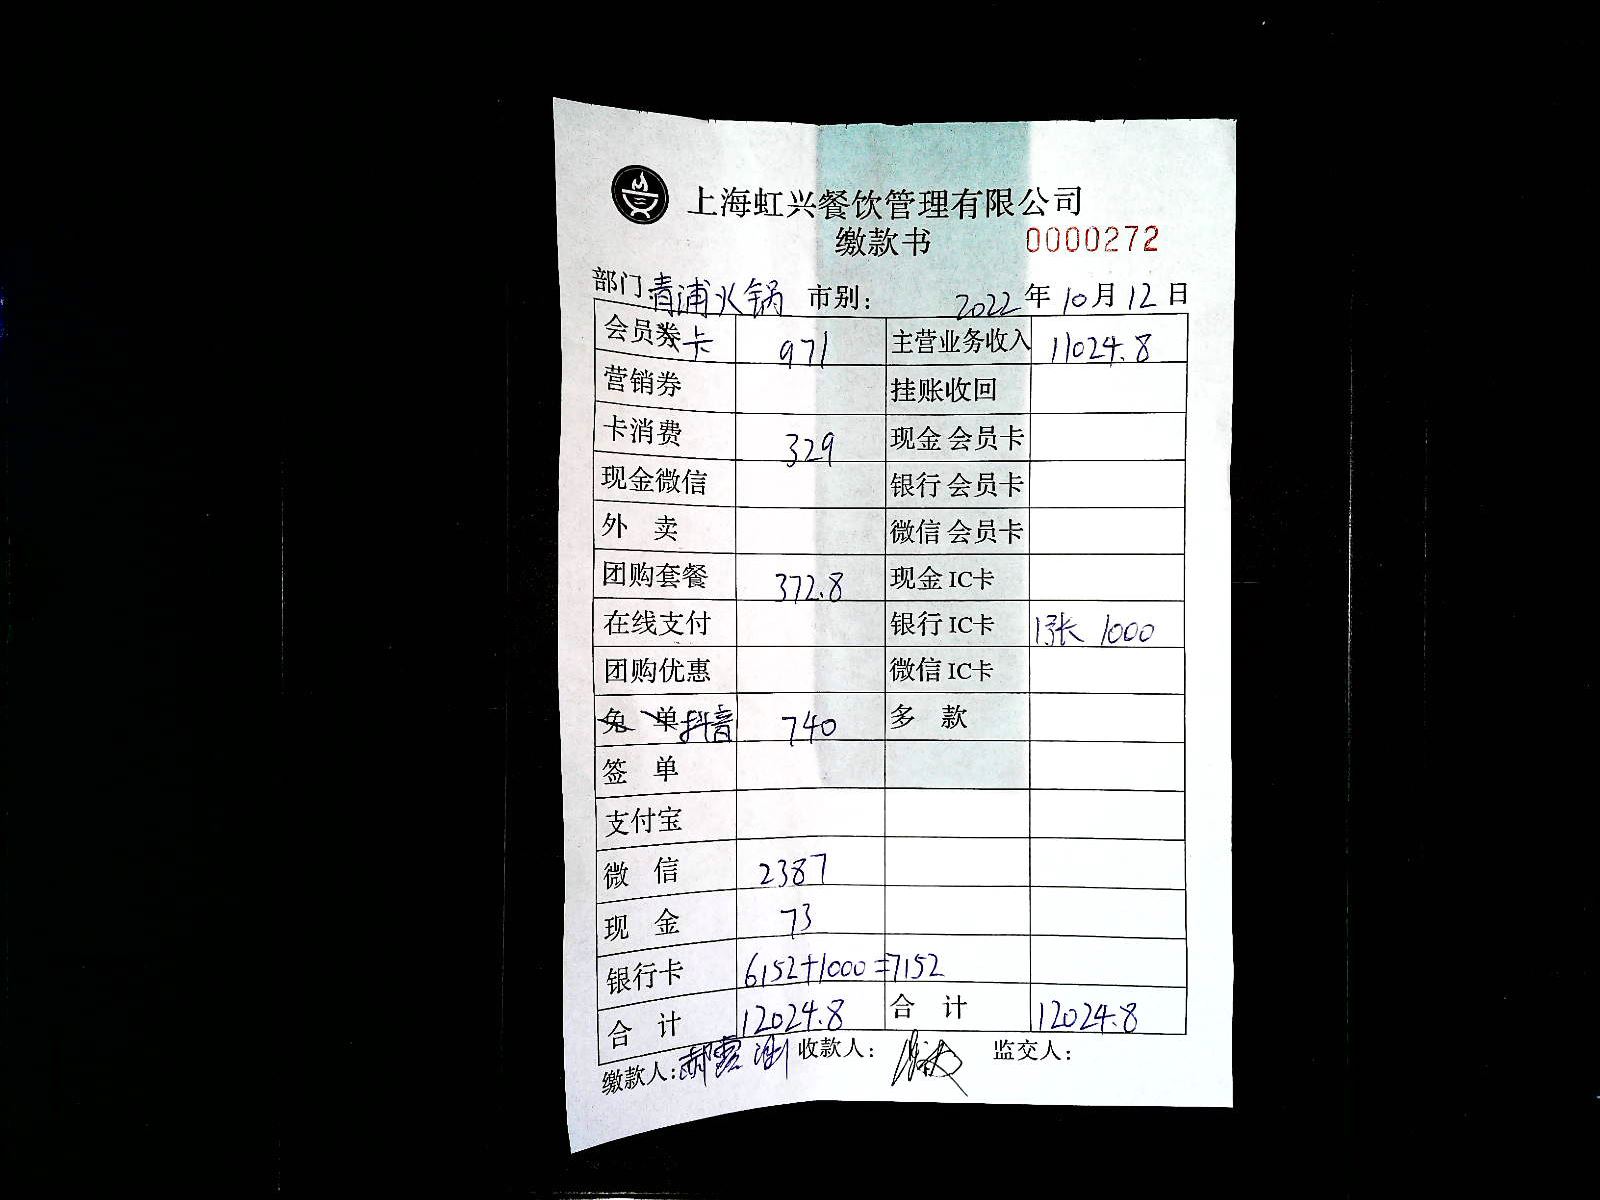 上海虹兴餐饮管理有限公司
缴款书 0000272
部门 青浦火锅 市别： 2022 年 10 月 12 日
会员券卡 971 主营业务收入 11024.8
营销券 挂账收回
卡消费 329 现金 会员卡
现金微信 银行 会员卡
外 卖 微信 会员卡
团购套餐 372.8 现金 IC卡
在线支付 银行 IC卡 1张 1000
团购优惠 微信 IC卡
免 单 抖音 740 多 款
签 单
支付宝
微 信 2387
现 金 73
银行卡 6152+1000=7152
合 计 12024.8 合 计 12024.8
缴款人： 收款人： 监交人：